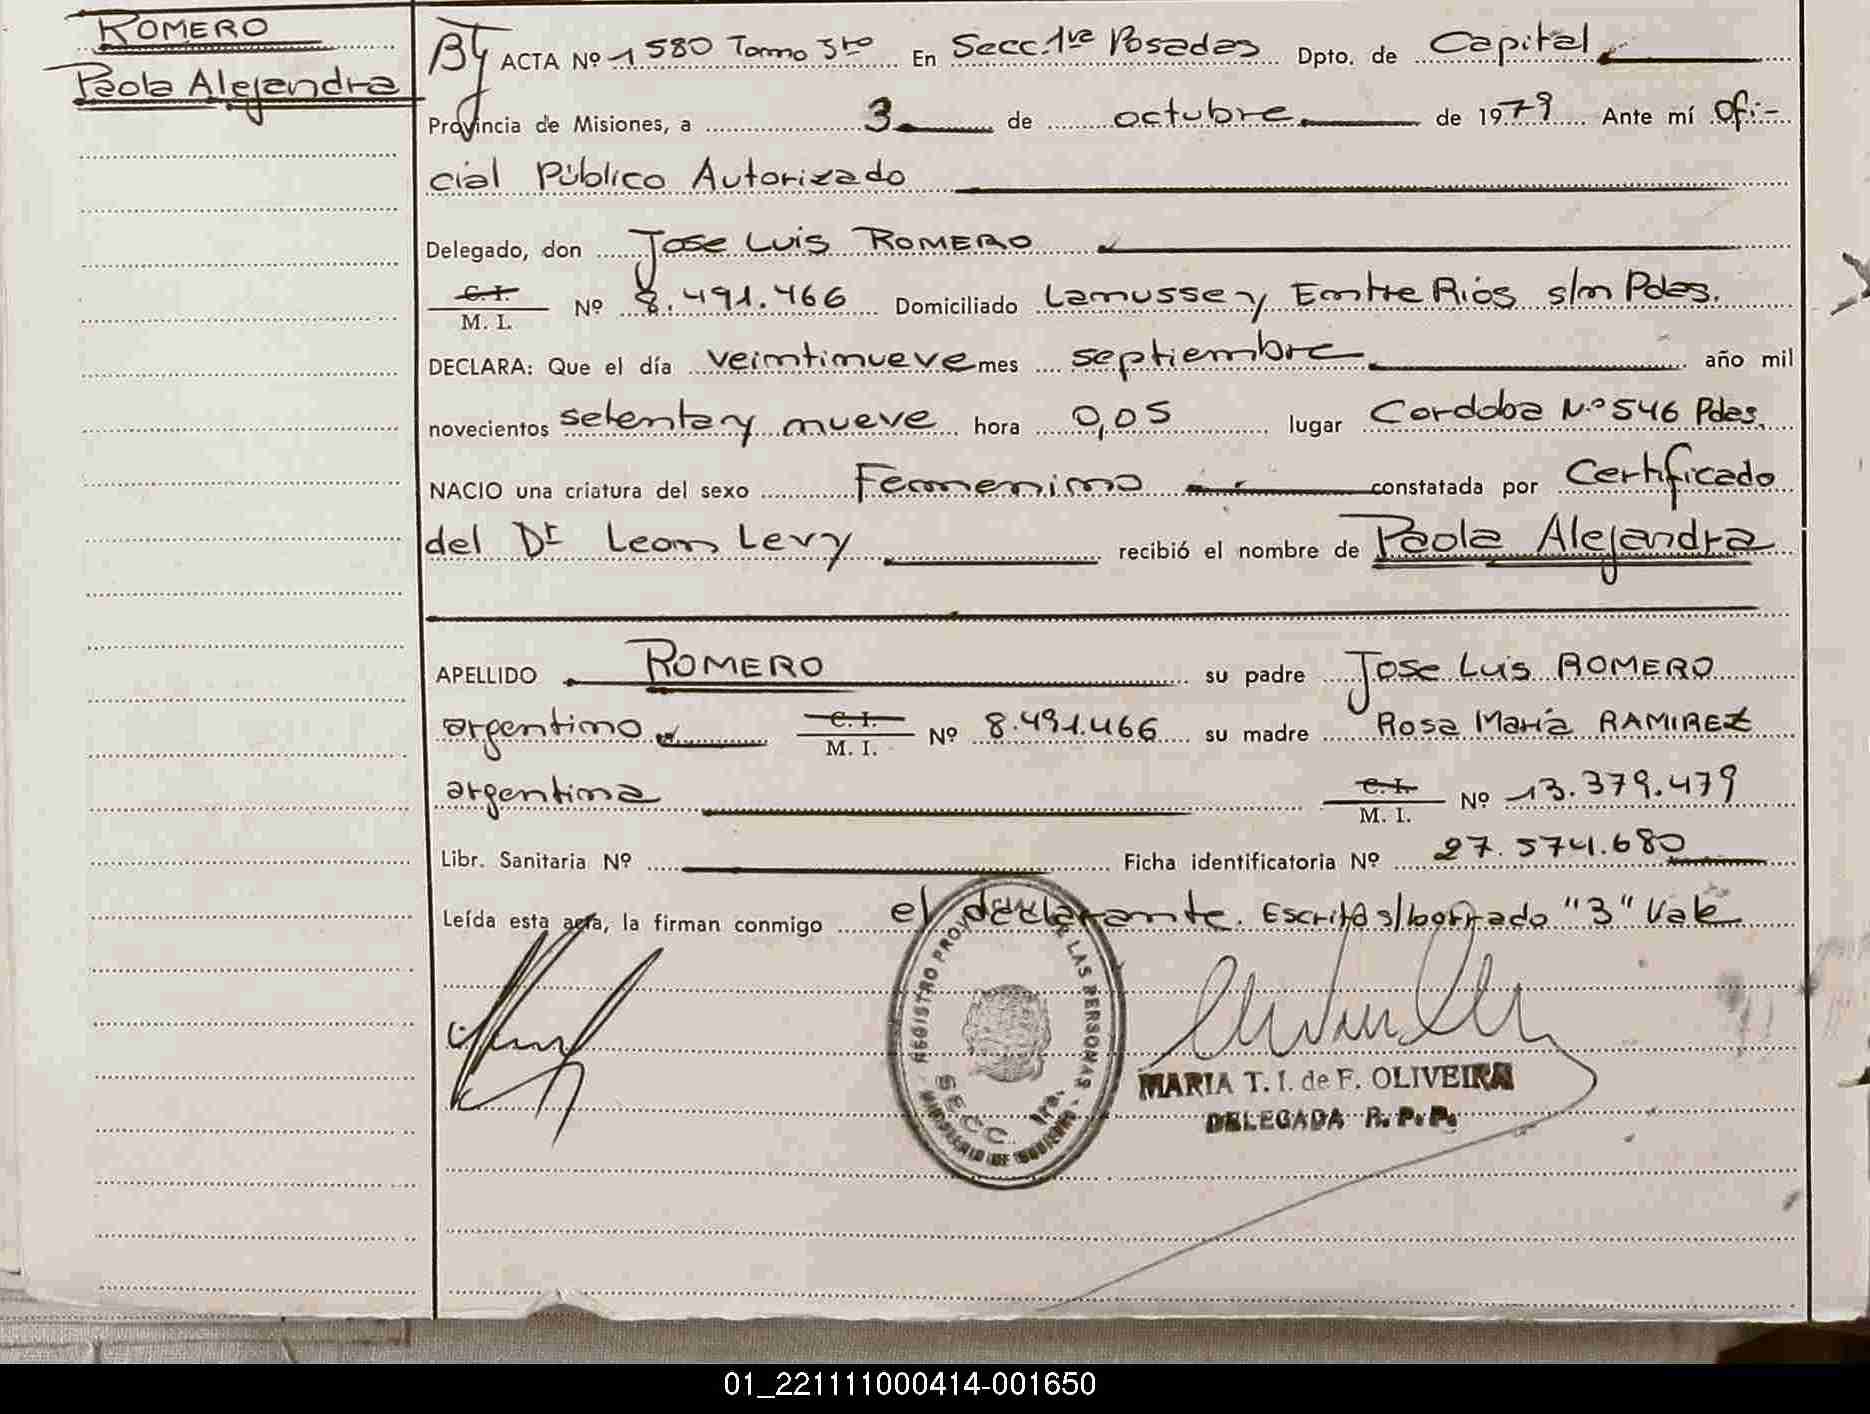 ROMERO
Paola Alejandra
ACTA Nº 1580 Tomo 3ro En Secc. 1ra Posadas Dpto. de Capital
Provincia de Misiones, a 3 de octubre de 1979 Ante mí Ofi-
cial Público Autorizado
Delegado, don Jose Luis ROMERO
C.I.
M. I. Nº 8.491.466 Domiciliado Lanusse y Entre Rios s/n Pdas.
DECLARA: Que el día veintinueve mes septiembre año mil
novecientos setenta y nueve hora 0,05 lugar Cordoba N.º 546 Pdas.
NACIO una criatura del sexo Femenino constatada por Certificado
del Dr Leon Levy recibió el nombre de Paola Alejandra
APELLIDO ROMERO su padre Jose Luis ROMERO
argentino C.I. M. I. Nº 8.491.466 su madre Rosa María RAMIREZ
argentina C.I. M. I. Nº 13.379.479
Libr. Sanitaria Nº Ficha identificatoria Nº 27.574.680
Leída esta acta, la firman conmigo el declarante. Escrito s/borrado "3" Vale
REGISTRO PROV. DE LAS PERSONAS
SECC. 1ra.
MINISTERIO DE GOBIERNO
MARIA T. I. de F. OLIVEIRA
DELEGADA R. P. P.
01_221111000414-001650